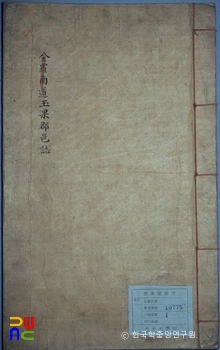 全羅南道玉果郡邑誌
10775
1
© 한국학중앙연구원